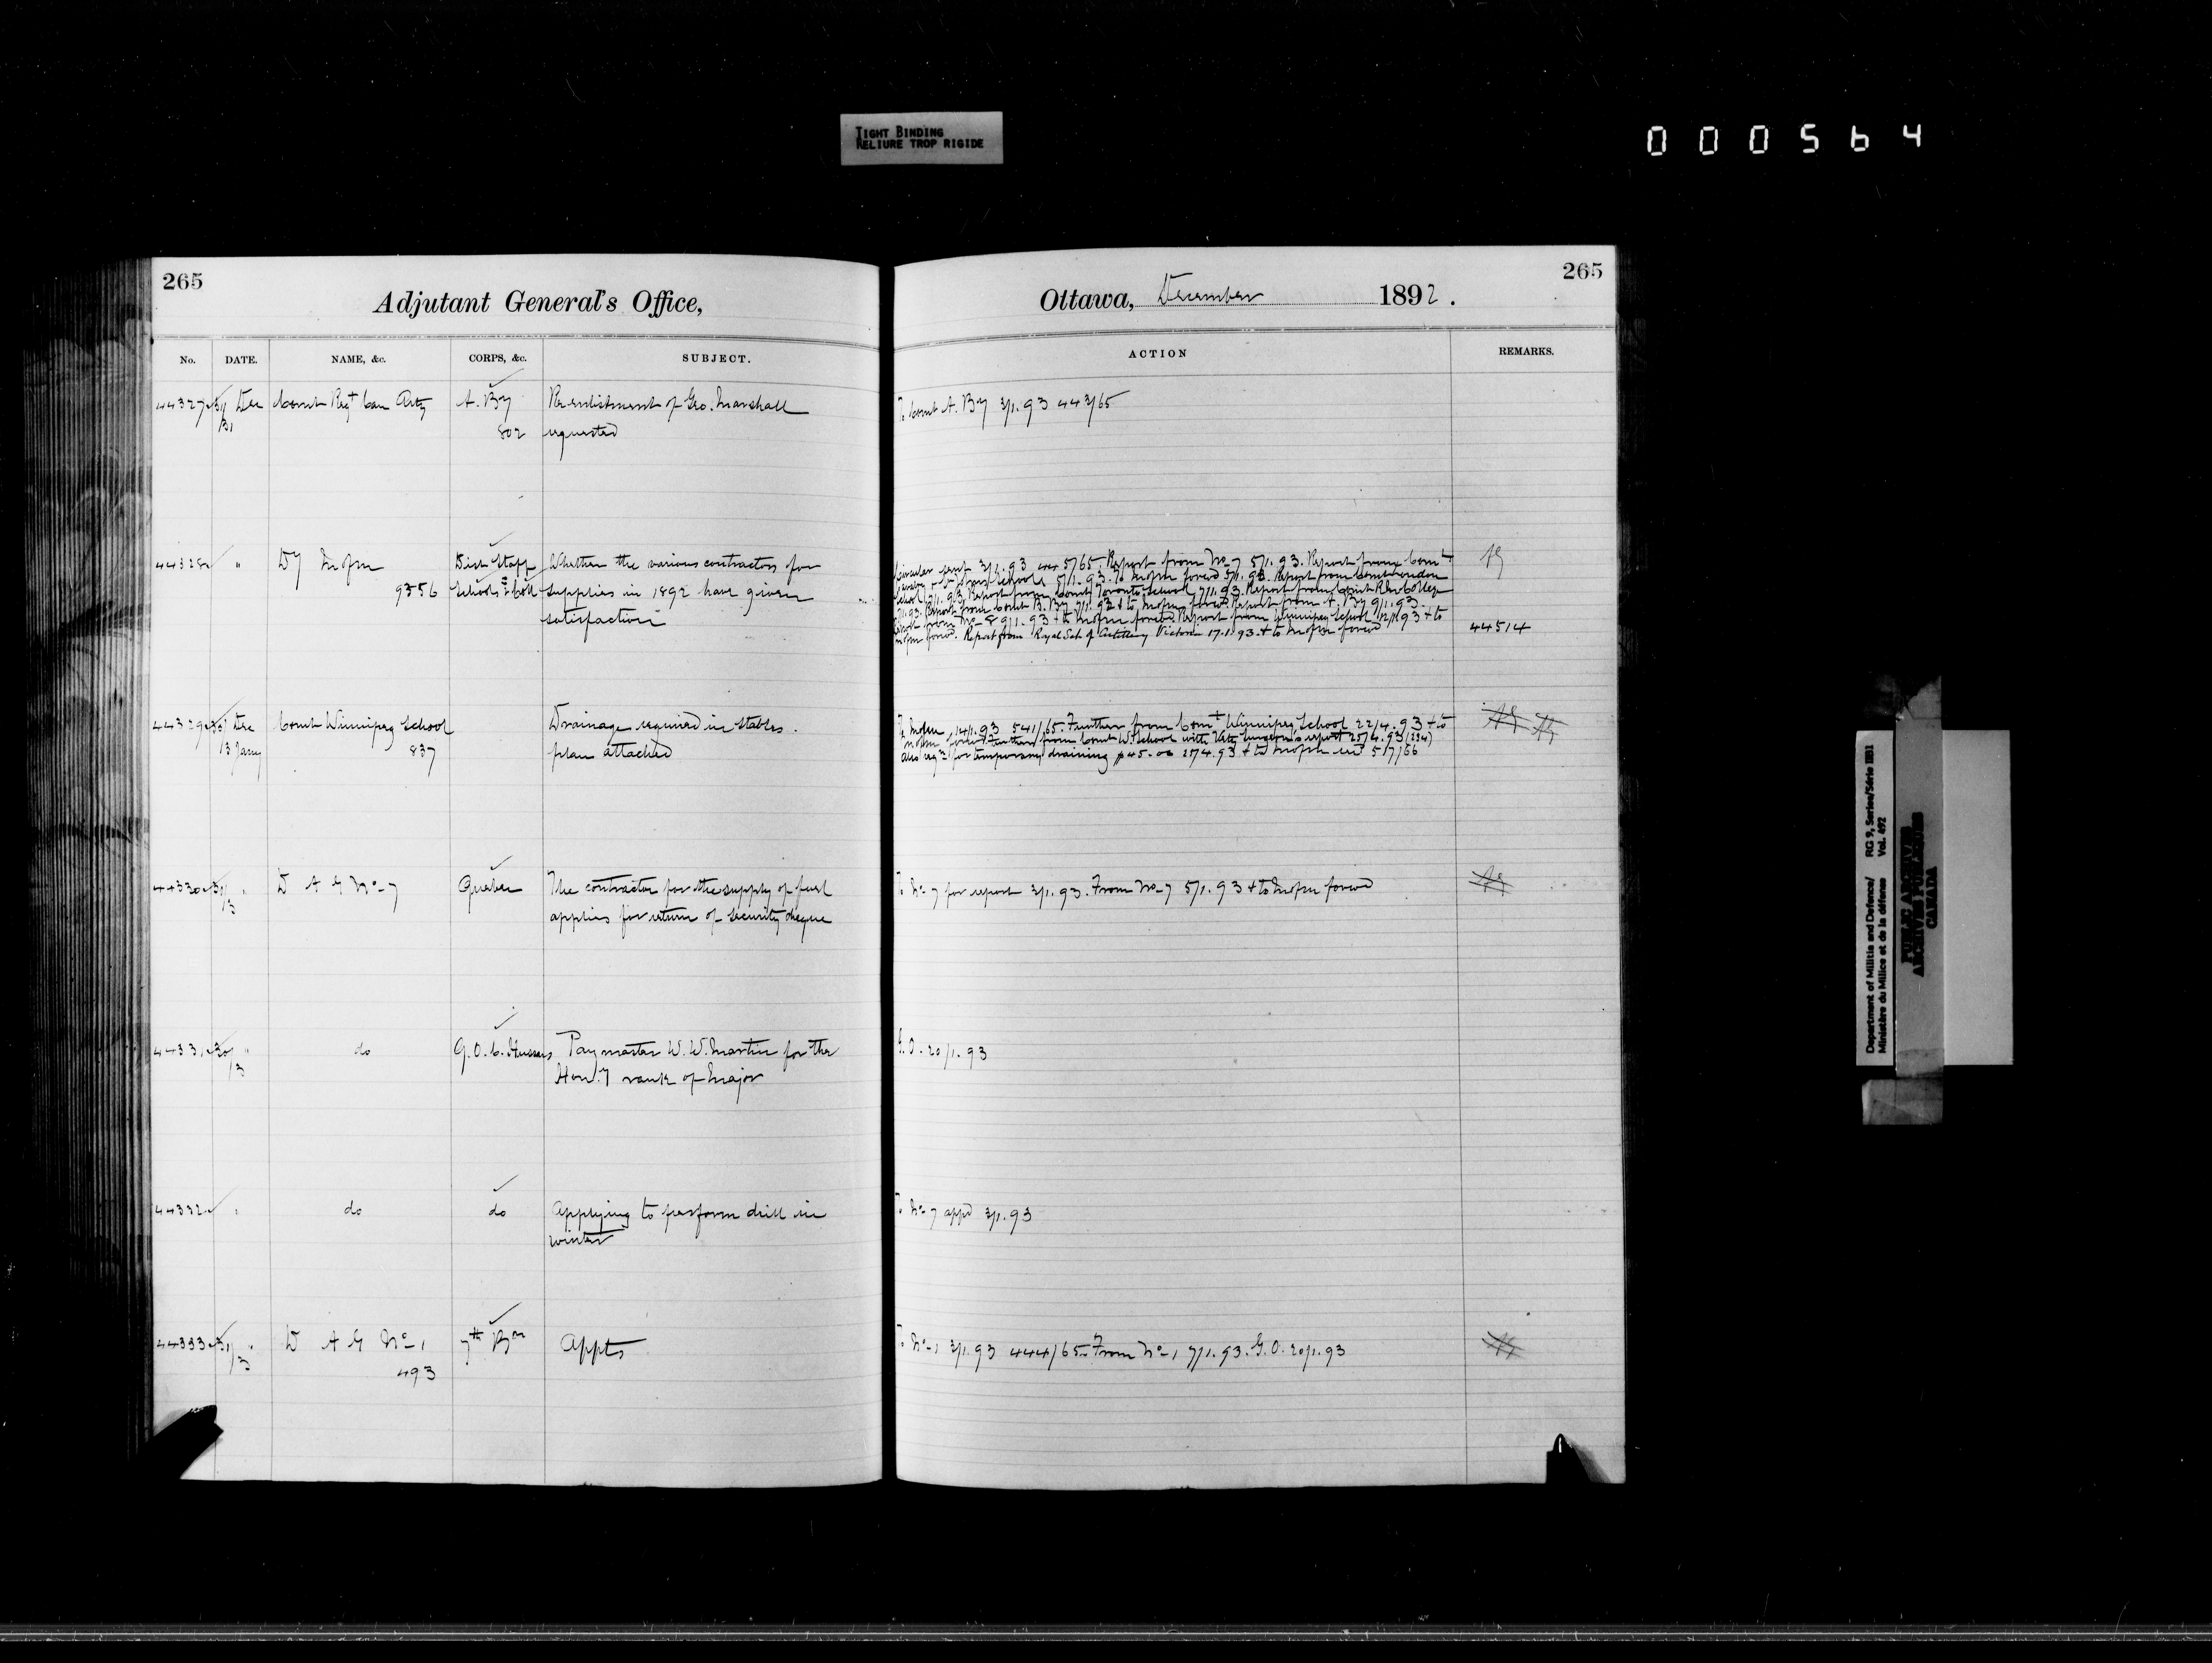 TIGHT BINDING
RELIURE TROP RIGIDE
000564
265
Adjutant General's Office,
No. DATE. NAME, &c. CORPS, &c. SUBJECT.
44327 31 Dec Comt Regt Can Arty A. By Re-enlistment of Geo. Marshall
31 802 requested
44328 " DY M of m Dist Staff Whether the various contractors for
9356 Schools & Coll supplies in 1892 have given
satisfaction
44329 30 Dec Comt Winnipeg School Drainage required in stables.
13 Jany 837 plan attached
44330 31/3 " D A G No 7 Quebec The contractor for the supply of fuel
applies for return of security cheque
44331 30/3 " do Q.O.C. Hussars Paymaster W. W. Martin for the
Hony rank of Major
44332 " do do Applying to perform drill in
winter
44333 31/3 " D A G No 1 7th Bn Appts
493
265
Ottawa, December 1892.
ACTION REMARKS.
To Comt A. By 3/1.93 443/65
Circular sent 3/1.93 5/65. Report from No 7 5/1.93. Report from Comt
schools 5/1.93. To M of m forwd 5/1.93. Report from Comt London
School 7/1.93. Report from Comt Toronto School 7/1.93. Report from Comt RMCollege
7/1.93. Report from Comt B. By 7/1.93 & to M of m forwd. Report from A. By 9/1.93.
Report from No 8 9/1.93 & to M of m forwd. Report from Winnipeg School 12/1.93 & to
M of m forwd. Report from Royal Sch of Artillery Victoria 17.1.93 & to M of m forwd 44514
To M of m 14/1.93 541/65. Further from Comt Winnipeg School 22/4.93 & to
M of m forwd Further from Comt W. School with Vety Surgeon's report 25/4.93 (234)
also reqn for temporary draining $45.00 27/4.93 & to M of m 517/66
To No 7 for report 3/1.93. From No 7 5/1.93 & to M of m forwd
G.O. 20/1.93
To No 7 appd 3/1.93
To No 1 3/1.93 444/65. From No 1 7/1.93. G.O. 20/1.93
Department of Militia and Defence/ RG 9, Series/Série IIB1
Ministère du Milice et de la défense Vol. 492
PUBLIC ARCHIVES
ARCHIVES PUBLIQUES
CANADA